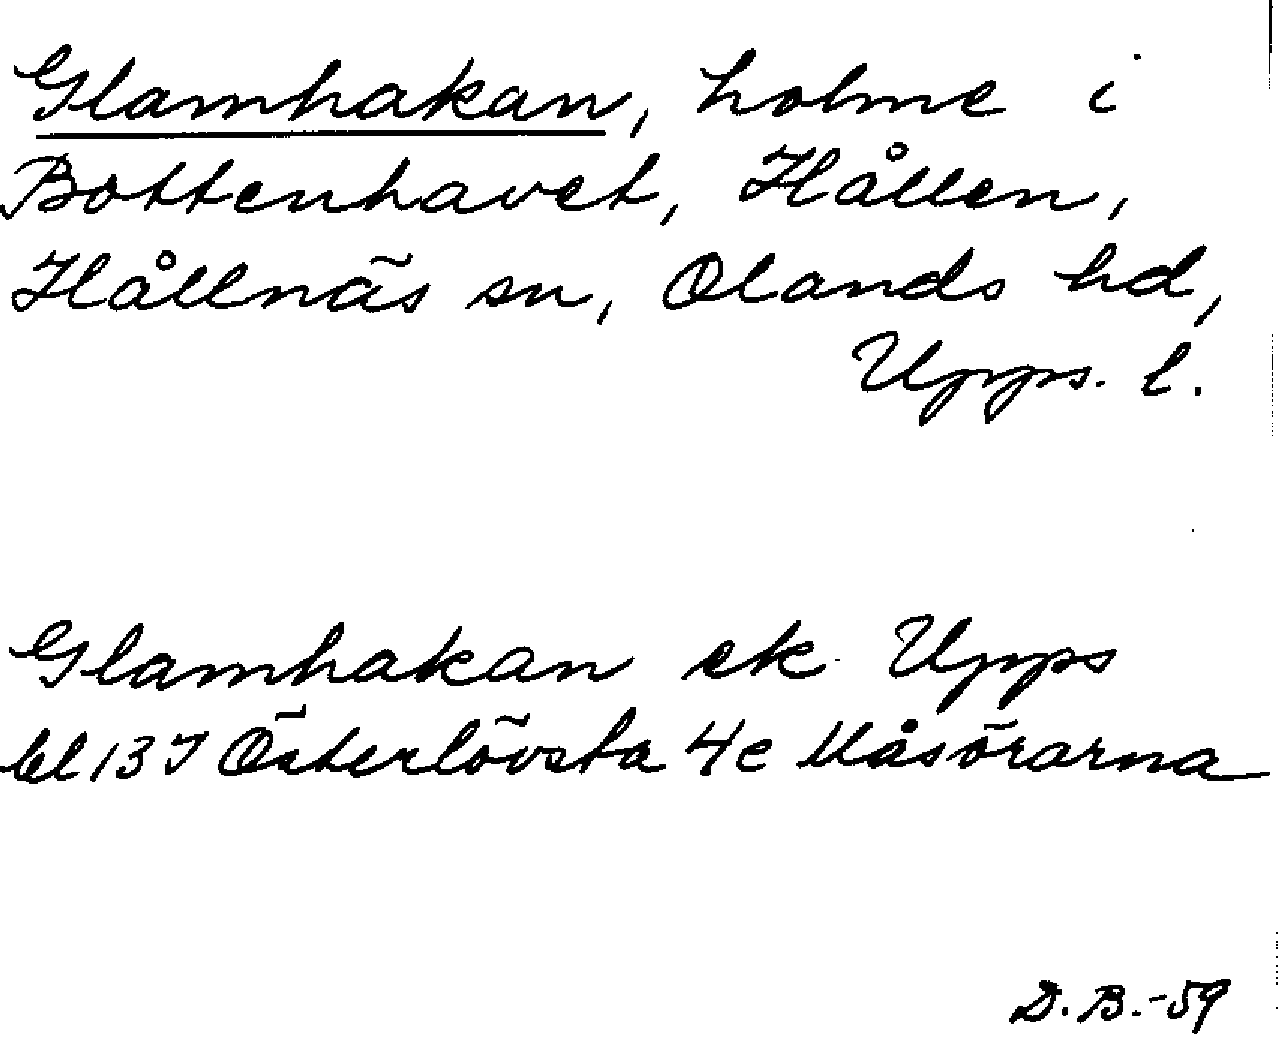 Glamhakan, holme i
Bottenhavet, Hållen,
Hållnäs sn, Olands hd,
Upps. l.
Glamhakan ek Upps
bl 13 J Österlövsta 4e Måsörarna
D.B.-59